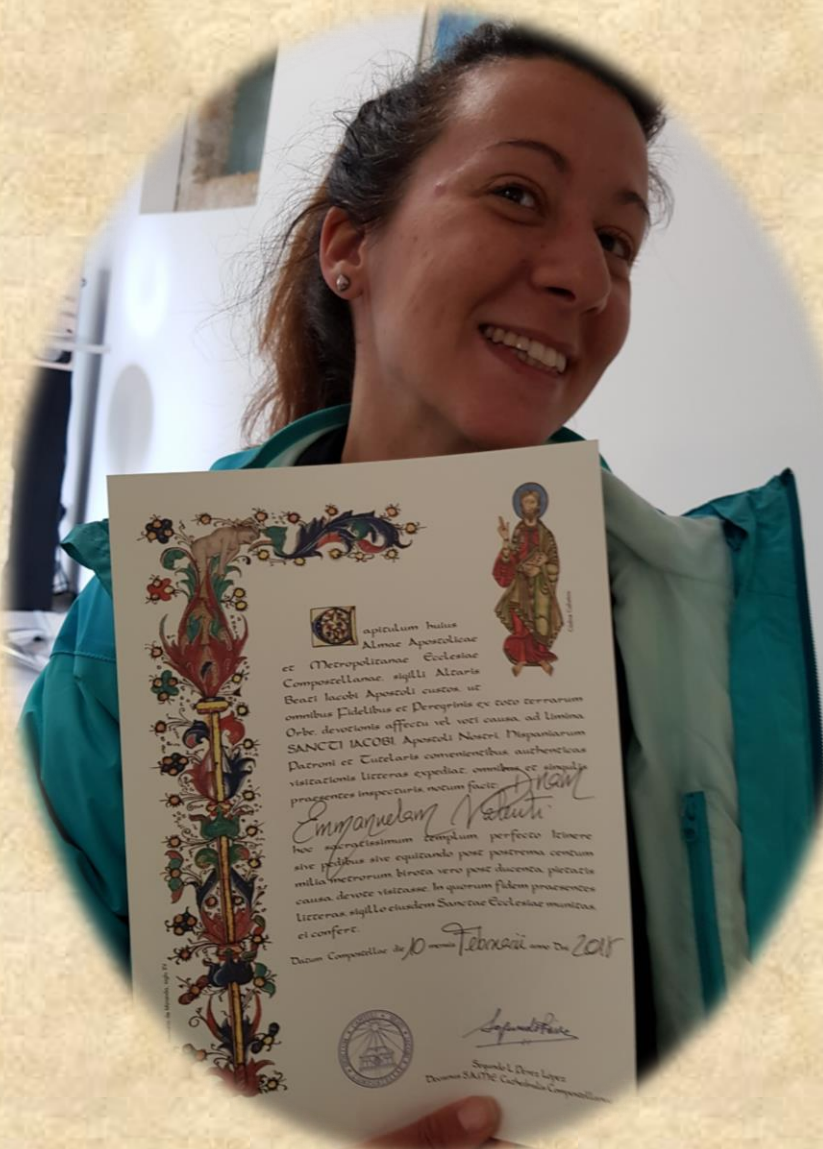 Capitulum huius
Almae Apostolicae
et Metropolitanae Ecclesiae
Compostellanae, sigilli Altaris
Beati Iacobi Apostoli custos, ut
omnibus Fidelibus et Peregrinis ex toto terrarum
Orbe, devotionis affectu vel voti causa, ad limina
SANCTI IACOBI, Apostoli Nostri, Hispaniarum
Patroni et Tutelaris convenientibus, authenticas
visitationis litteras expediat, omnibus et singulis
praesentes inspecturis, notum facit: Dnam
Emmanuelam
hoc sacratissimum templum, perfecto Itinere
sive pedibus sive equitando post postrema centum
milia metrorum, birota vero post ducenta, pietatis
causa, devote visitasse. In quorum fidem praesentes
litteras, sigillo eiusdem Sanctae Ecclesiae munitas,
ei confert.
Datum Compostellae die 10 mensis Februarii anno Dni 2018
Segundo L. Pérez López
Decanus S.A.M.E. Cathedralis Compostellanae